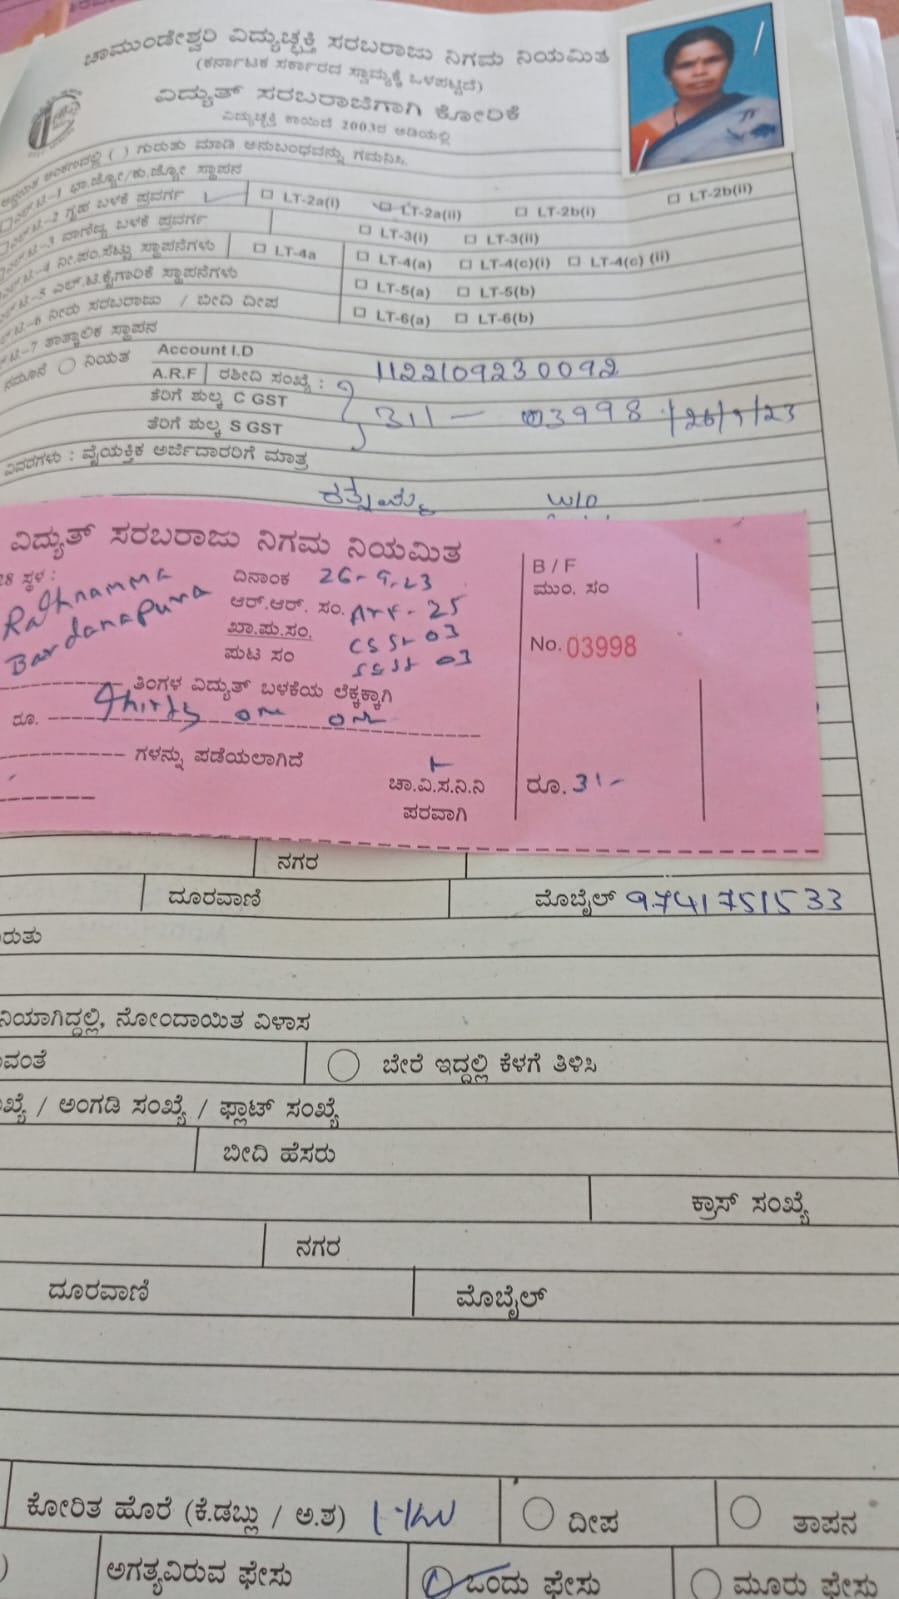 ಚಾಮುಂಡೇಶ್ವರಿ ವಿದ್ಯುಚ್ಛಕ್ತಿ ಸರಬರಾಜು ನಿಗಮ ನಿಯಮಿತ
(ಕರ್ನಾಟಕ ಸರ್ಕಾರದ ಸ್ವಾಮ್ಯಕ್ಕೆ ಒಳಪಟ್ಟಿದೆ)
ವಿದ್ಯುತ್ ಸರಬರಾಜಿಗಾಗಿ ಕೋರಿಕೆ
ವಿದ್ಯುಚ್ಛಕ್ತಿ ಕಾಯಿದೆ 2003ರ ಅಡಿಯಲ್ಲಿ
ಗುರುತು ಮಾಡಿ ಅನುಬಂಧವನ್ನು ಗಮನಿಸಿ.
ಸ್ಥಾಪನ
ಗೃಹ ಬಳಕೆ ಪ್ರವರ್ಗ LT-2a(i) LT-2a(ii) LT-2b(i) LT-2b(ii)
ಬಳಕೆ ಪ್ರವರ್ಗ LT-3(i) LT-3(ii)
ನೀ.ಪಂ.ಸೆಟ್ಟು ಸ್ಥಾಪನೆಗಳು LT-4a LT-4(a) LT-4(c)(i) LT-4(c) (ii)
ಎಲ್.ಟಿ.ಕೈಗಾರಿಕೆ ಸ್ಥಾಪನೆಗಳು LT-5(a) LT-5(b)
ನೀರು ಸರಬರಾಜು / ಬೀದಿ ದೀಪ LT-6(a) LT-6(b)
ತಾತ್ಕಾಲಿಕ ಸ್ಥಾಪನ
ನಮೂನೆ ನಿಯತ Account I.D 1122109230092
A.R.F ರಶೀದಿ ಸಂಖ್ಯೆ :
ತೆರಿಗೆ ಶುಲ್ಕ C GST 31/- 03998 /26/9/23
ತೆರಿಗೆ ಶುಲ್ಕ S GST
ವಿವರಗಳು : ವೈಯಕ್ತಿಕ ಅರ್ಜಿದಾರರಿಗೆ ಮಾತ್ರ
ರತ್ನಮ್ಮ W/O
ವಿದ್ಯುತ್ ಸರಬರಾಜು ನಿಗಮ ನಿಯಮಿತ
28 ಸ್ಥಳ : ದಿನಾಂಕ 26-9-23 B / F
Rathnamma ಆರ್.ಆರ್. ಸಂ. ARF - 25 ಮುಂ. ಸಂ
Bardanapura ಖಾ.ಪು.ಸಂ. CGST 03 No. 03998
ಪುಟ ಸಂ SGST 03
ತಿಂಗಳ ವಿದ್ಯುತ್ ಬಳಕೆಯ ಲೆಕ್ಕಕ್ಕಾಗಿ
ರೂ. Thirty one only
ಗಳನ್ನು ಪಡೆಯಲಾಗಿದೆ
ಚಾ.ವಿ.ಸ.ನಿ.ನಿ ರೂ. 31-
ಪರವಾಗಿ
ನಗರ
ದೂರವಾಣಿ ಮೊಬೈಲ್ 9741751533
ರುತು
ನಿಯಾಗಿದ್ದಲ್ಲಿ, ನೋಂದಾಯಿತ ವಿಳಾಸ
ವಂತೆ ಬೇರೆ ಇದ್ದಲ್ಲಿ ಕೆಳಗೆ ತಿಳಿಸಿ
ಖ್ಯೆ / ಅಂಗಡಿ ಸಂಖ್ಯೆ / ಫ್ಲಾಟ್ ಸಂಖ್ಯೆ
ಬೀದಿ ಹೆಸರು
ಕ್ರಾಸ್ ಸಂಖ್ಯೆ
ನಗರ
ದೂರವಾಣಿ ಮೊಬೈಲ್
ಕೋರಿತ ಹೊರೆ (ಕೆ.ಡಬ್ಲು / ಅ.ಶ) 1-KW ದೀಪ ತಾಪನ
ಅಗತ್ಯವಿರುವ ಫೇಸು ಒಂದು ಫೇಸು ಮೂರು ಫೇಸು